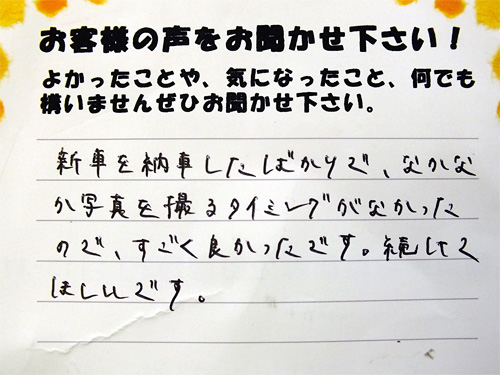 お客様の声をお聞かせ下さい！
よかったことや、気になったこと、何でも
構いませんぜひお聞かせ下さい。
新車を納車したばかりで、なかな
か写真を撮るタイミングがなかった
ので、すごく良かったです。続けて
ほしいです。